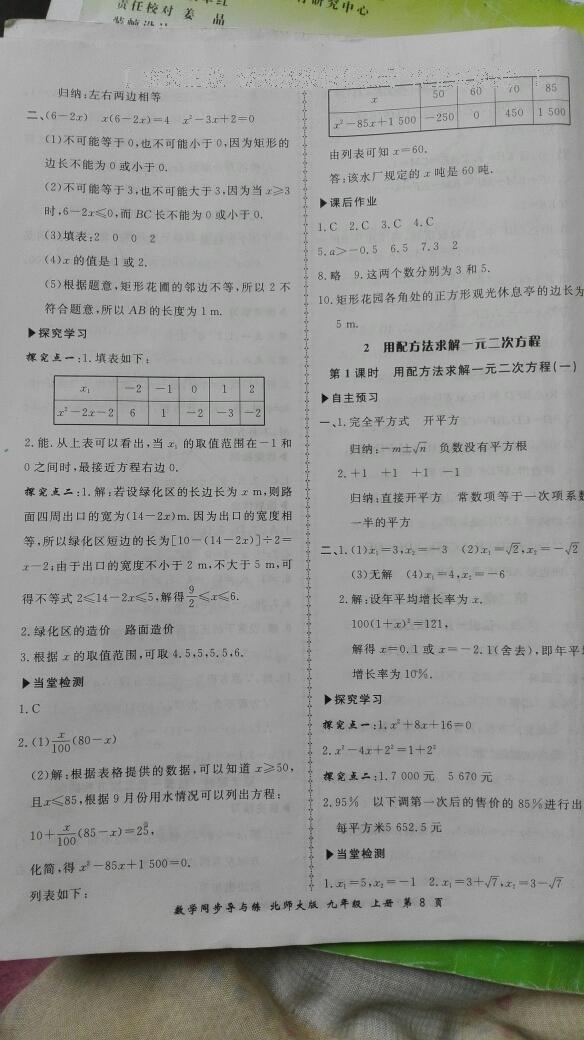 责任校对 姜 晶
研究中心
归纳:左右两边相等
二、(6-2x) x(6-2x)=4 x²-3x+2=0
(1)不可能等于0,也不可能小于0,因为矩形的
边长不能为0或小于0.
(2)不可能等于3,也不可能大于3,因为当x≥3
时,6-2x≤0,而BC长不能为0或小于0.
(3)填表:2 0 0 2
(4)x的值是1或2.
(5)根据题意,矩形花圃的邻边不等,所以2不
符合题意,所以AB的长度为1 m.
▶探究学习
探究点一:1.填表如下:
x₁ -2 -1 0 1 2
x²-2x-2 6 1 -2 -3 -2
2.能.从上表可以看出,当x₁的取值范围在-1和
0之间时,最接近方程右边0.
探究点二:1.解:若设绿化区的长边长为x m,则路
面四周出口的宽为(14-2x)m.因为出口的宽度相
等,所以绿化区短边的长为[10-(14-2x)]÷2=
x-2;由于出口的宽度不小于2 m,不大于5 m,可
得不等式2≤14-2x≤5,解得9/2≤x≤6.
2.绿化区的造价 路面造价
3.根据x的取值范围,可取4.5,5,5.5,6.
▶当堂检测
1.C
2.(1)x/100(80-x)
(2)解:根据表格提供的数据,可以知道x≥50,
且x≤85,根据9月份用水情况可以列出方程:
10+x/100(85-x)=25,
化简,得x²-85x+1 500=0.
列表如下:
x 50 60 70 85
x²-85x+1 500 -250 0 450 1 500
由列表可知x=60.
答:该水厂规定的x吨是60吨.
▶课后作业
1.C 2.C 3.C 4.C
5.a>-0.5 6.5 7.3 2
8.略 9.这两个数分别为3和5.
10.矩形花园各角处的正方形观光休息亭的边长为
5 m.
2 用配方法求解一元二次方程
第1课时 用配方法求解一元二次方程(一)
▶自主预习
一、1.完全平方式 开平方
归纳:-m±√n 负数没有平方根
2.+1 +1 +1 -1
归纳:直接开平方 常数项等于一次项系数
一半的平方
二、1.(1)x₁=3,x₂=-3 (2)x₁=√2,x₂=-√2
(3)无解 (4)x₁=4,x₂=-6
2.解:设年平均增长率为x.
100(1+x)²=121,
解得x=0.1或x=-2.1(舍去),即年平均
增长率为10%.
▶探究学习
探究点一:1.x²+8x+16=0
2.x²-4x+2²=1+2²
探究点二:1.7 000元 5 670元
2.95% 以下调第一次后的售价的85%进行出
每平方米5 652.5元
▶当堂检测
1.x₁=5,x₂=-1 2.x₁=3+√7,x₂=3-√7
数学同步导与练 北师大版 九年级 上册 第8页